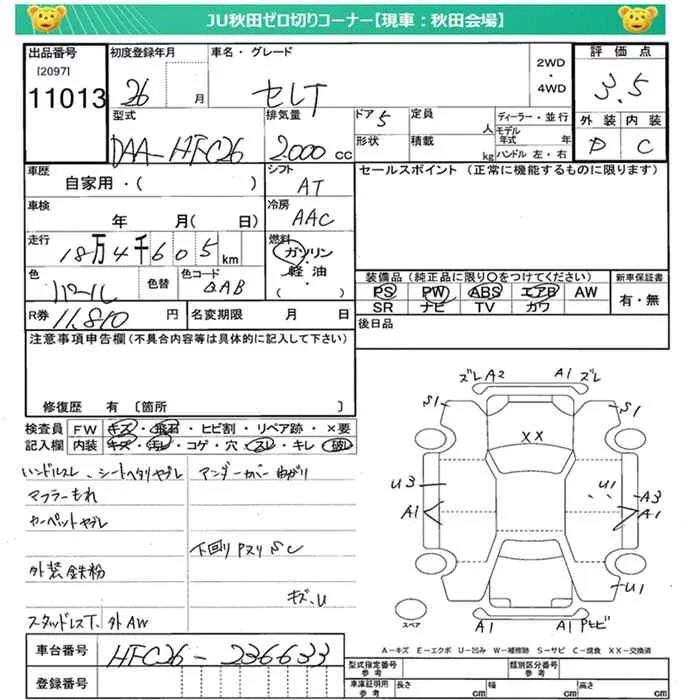 JU秋田ゼロ切りコーナー【現車：秋田会場】
出品番号 初度登録年月 車名・グレード 2WD・4WD 評価点
[2097]
11013 26 月 セレT 3.5
型式 排気量 ドア 5 定員 人 ディーラー・並行 外装 内装
DAA-HFC26 2.000 cc 形状 積載 kg モデル年式 年 ハンドル 左・右 D C
車歴 シフト セールスポイント（正常に機能するものに限ります）
自家用・（ ） AT
車検 冷房
年 月（ 日） AAC
走行 燃料
18万4千605 km ガソリン・軽油（ ）
色 パール 色替 色コード QAB
装備品（純正品に限り○をつけてください） 新車保証書
PS PW ABS エアB AW 有・無
SR ナビ TV カワ
R券 11,810 円 名変期限 月 日 後日品
注意事項申告欄（不具合内容等は具体的に記入して下さい）
修復歴 有〔箇所 〕
検査員 FW キズ・飛石・ヒビ割・リペア跡・×要
記入欄 内装 キズ・汚レ・コゲ・穴・スレ・キレ・破レ
ハンドルスレ、シートヘタリヤブレ アンダーカバー曲がり
マフラーもれ
カーペットヤブレ
下回りPスリ SC
外装鉄粉
キズ、U
スタッドレスT、外AW
ズレ A2 A1 ズレ
S1 S1
XX
U3 U1
A1 A3
A1
U1
スペア A1 A1 Pヒビ
A－キズ E－エクボ U－凹み W－補修跡 S－サビ C－腐食 XX－交換済
車台番号 HFC26-236633 型式指定番号 参考 類別区分番号 参考
登録番号 車庫証明用 参考 長さ cm 幅 cm 高さ cm